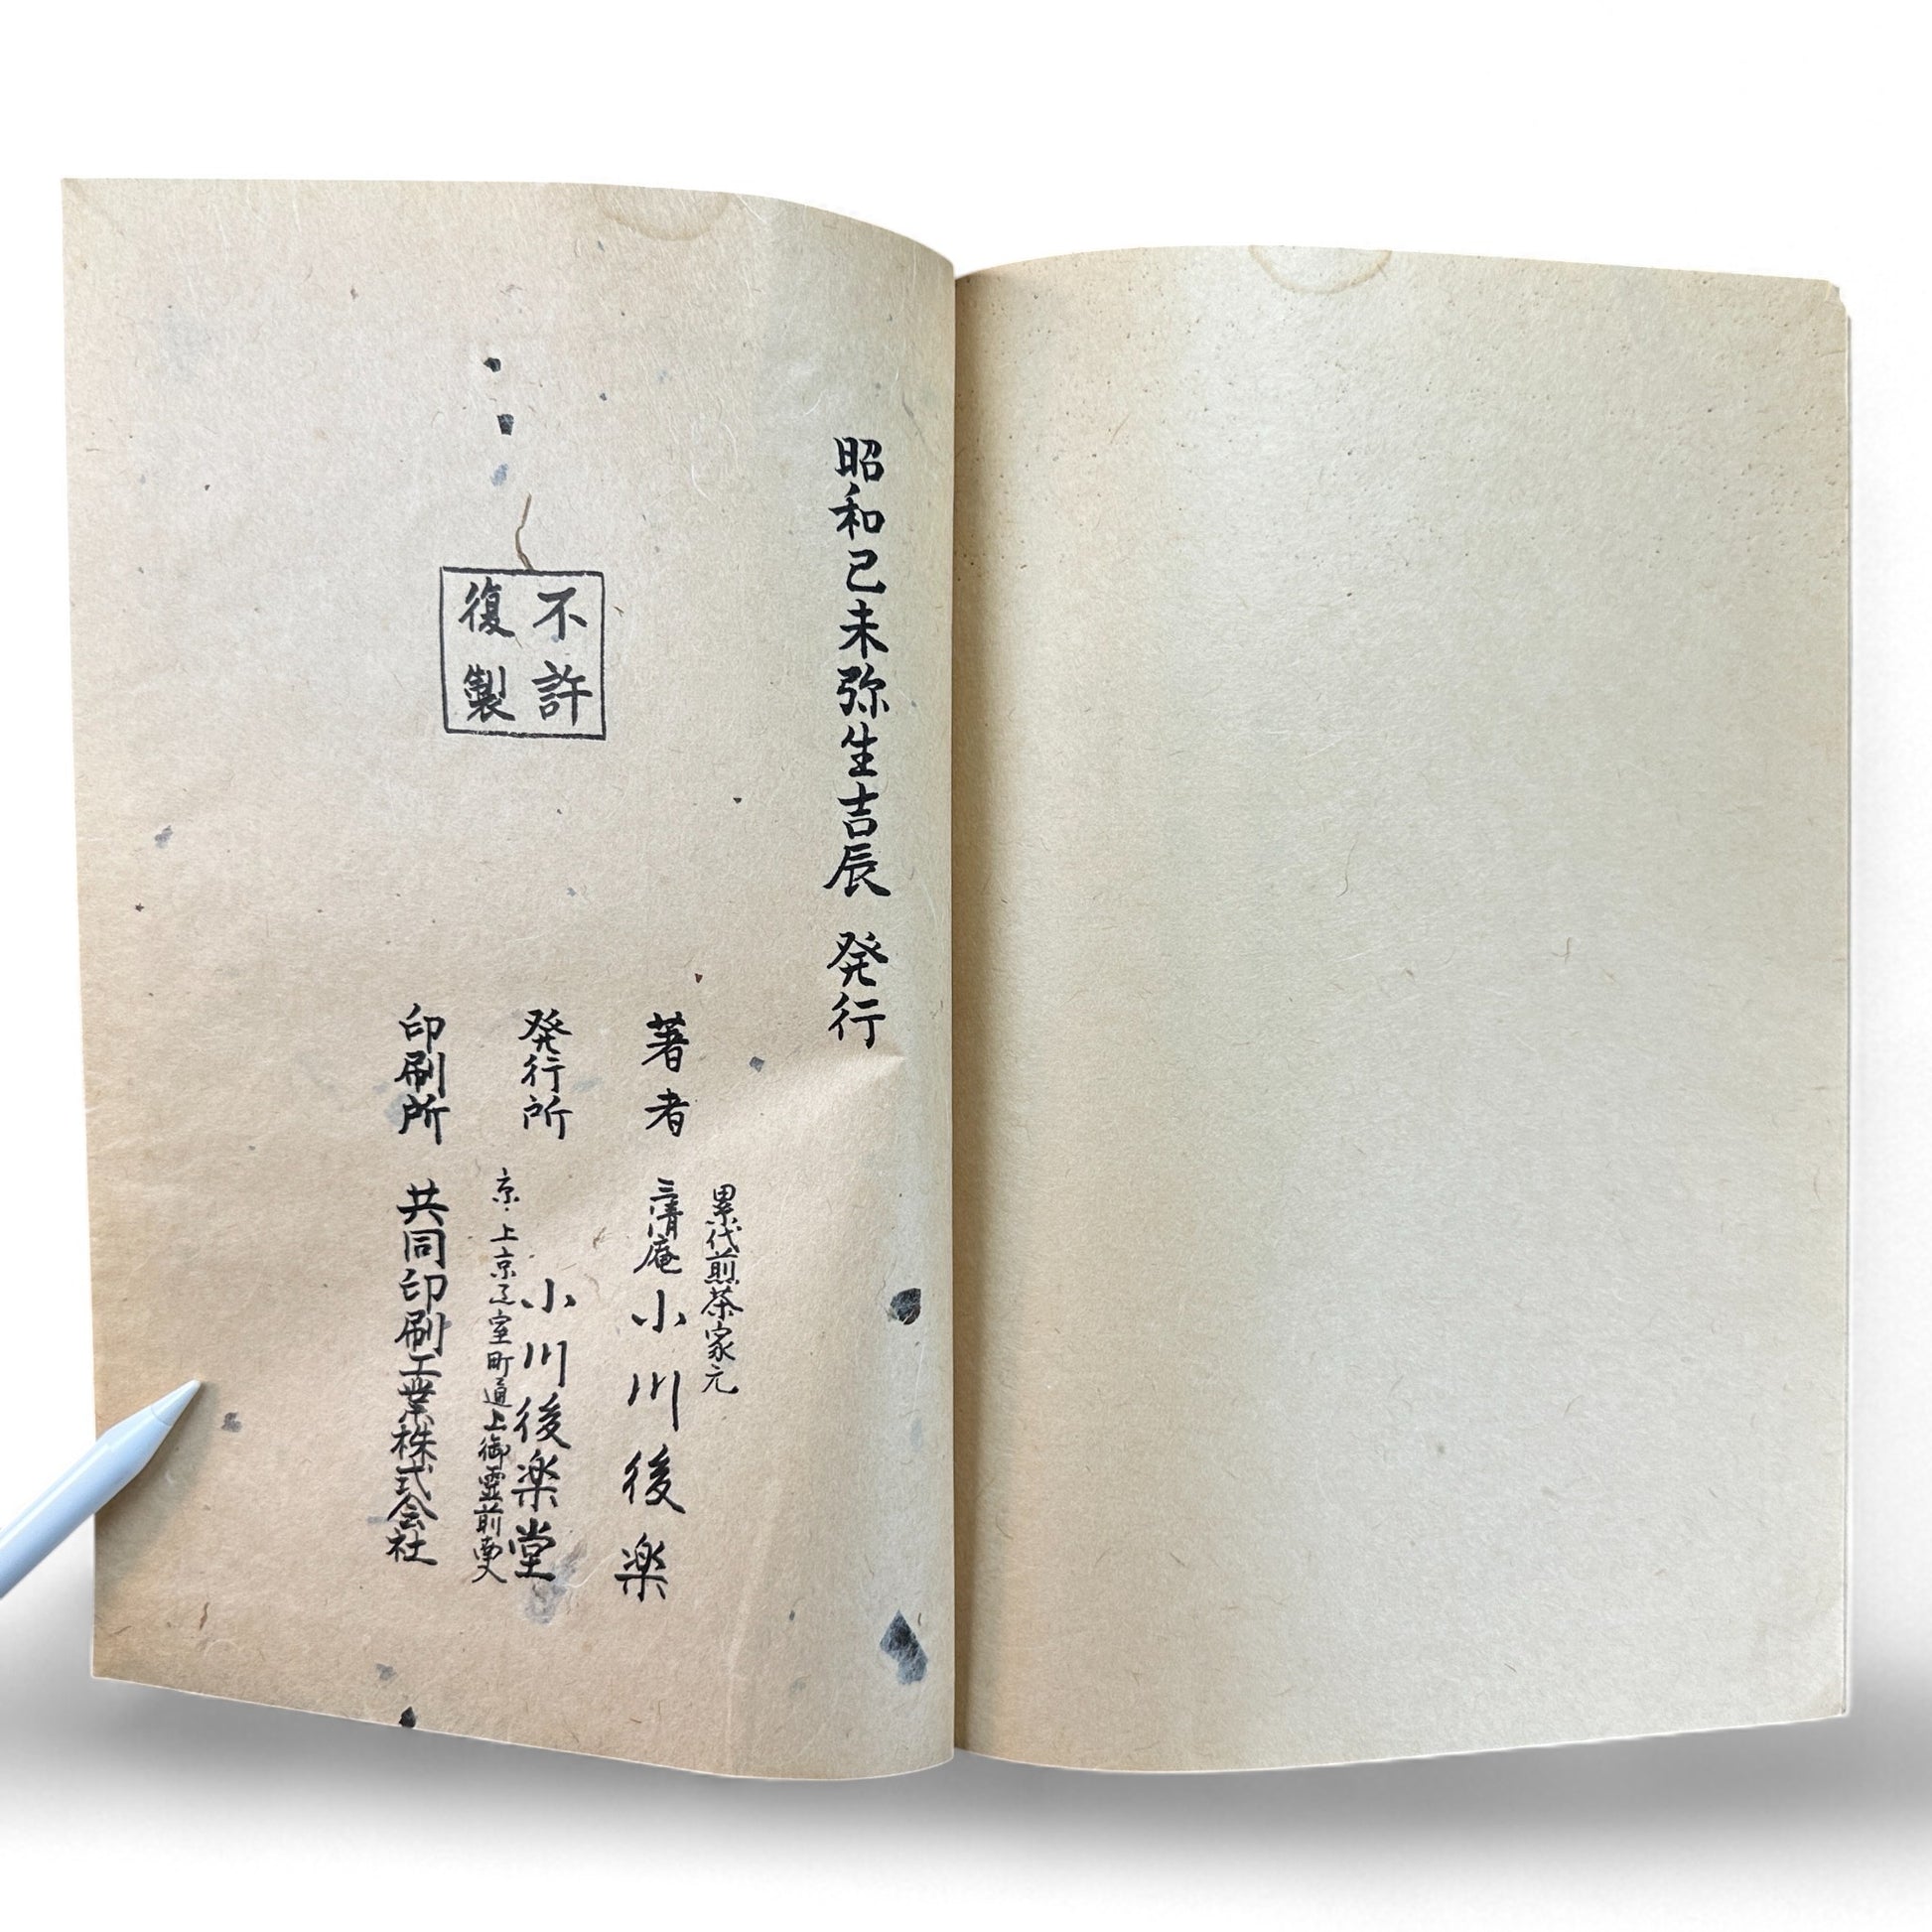 昭和己未弥生吉辰 発行
不許
復製
累代煎茶家元
著者 三清庵 小川後楽
発行所 小川後楽堂
京・上京区室町通上御霊前南入
印刷所 共同印刷工業株式会社